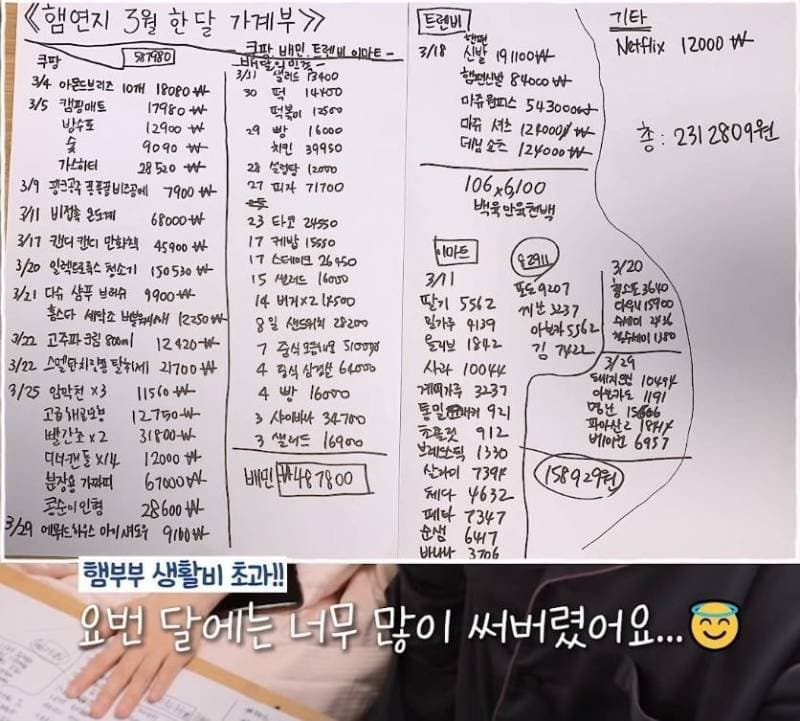 《햄연지 3월 한달 가계부》
쿠팡 587980
3/4 아몬드브리즈 10개 18080₩
3/5 캠핑매트 17980₩
방수포 12900₩
숯 9090₩
가스히터 28520₩
3/9 7900₩
3/11 비접촉 온도계 68000₩
3/17 캔디캔디 만화책 45900₩
3/20 일렉트로룩스 청소기 150530₩
3/21 다슈 샴푸 브러쉬 9900₩
홈스타 세탁조 12250₩
3/22 고주파크림 800ml 12420₩
3/22 탈취제 21700₩
3/25 암막천 ×3 11560₩
12750₩
빨간초 ×2 31800₩
디너캔들 ×14 12000₩
67000₩
콩순이인형 28600₩
3/29 에뛰드하우스 아이섀도우 9100₩
쿠팡 배민 트렌비 이마트 -
배달의민족 -
3/11 샐러드 13400
30 떡 14400
떡볶이 12500
29 빵 16000
치킨 39950
28 설렁탕 12000
27 피자 71700
23 타코 24550
17 케밥 15550
17 스테이크 26450
15 샐러드 16000
14 버거×2 14500
8일 샌드위치 28200
7 중식 51000
4 중식 64000
4 빵 16000
3 샤이바나 34700
3 샐러드 16900
배민 ₩487800
트렌비
3/18 햄편
신발 191100₩
햄편신발 84000₩
마쥬원피스 543000₩
마쥬 셔츠 124000₩
데님쇼츠 124000₩
106×6,100
백육만육천백
이마트
3/11
딸기 5562
밀가루 4139
올리브 1842
사과 10044
계피가루 3237
통밀 921
초콜릿 912
브레드스틱 1330
살라미 7394
체다 4632
페타 7347
순생 6417
바나나 3706
포도 9207
3237
아보카도 5562
김 7422
3/20
3640
다우니 15900
수세미 2436
1380
3/29
10494
아보카도 1191
명란 15606
베이컨 6957
158929원
기타
Netflix 12000₩
총 : 2312809원
햄부부 생활비 초과!!
요번 달에는 너무 많이 써버렸어요...